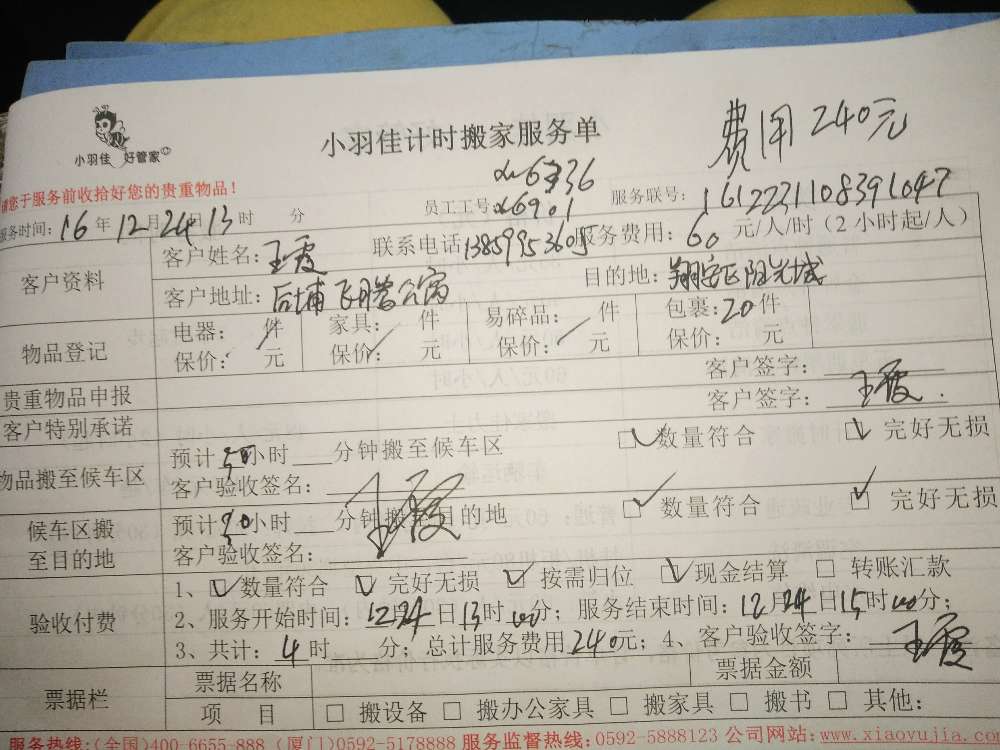 小羽佳 好管家
小羽佳计时搬家服务单
费用240元
请您于服务前收拾好您的贵重物品！
员工工号: x6901
服务联号: 1612221108391047
服务时间: 16年12月24日13时 分
客户资料
客户姓名: 王霞 联系电话: 服务费用: 60元/人/时(2小时起/人)
客户地址: 后埔 公寓 目的地: 翔安区阳光城
物品登记
电器: 件 家具: 件 易碎品: 件 包裹: 20件
保价: 元 保价: 元 保价: 元 保价: 元
贵重物品申报 客户签字:
客户特别承诺 客户签字: 王霞
物品搬至候车区
预计 小时 分钟搬至候车区 ☑数量符合 ☑完好无损
客户验收签名: 王霞
候车区搬至目的地
预计 小时 分钟搬至目的地 ☑数量符合 ☑完好无损
客户验收签名:
验收付费
1、☑数量符合 ☑完好无损 ☑按需归位 ☑现金结算 □转账汇款
2、服务开始时间: 12月24日13时00分; 服务结束时间: 12月24日15时00分;
3、共计: 4时 分; 总计服务费用240元; 4、客户验收签字: 王霞
票据栏
票据名称 票据金额
项 目 □搬设备 □搬办公家具 □搬家具 □搬书 □其他:
服务热线:(全国)400-6655-888 (厦门)0592-5178888 服务监督热线:0592-5888123 公司网站:www.xiaoyujia.com